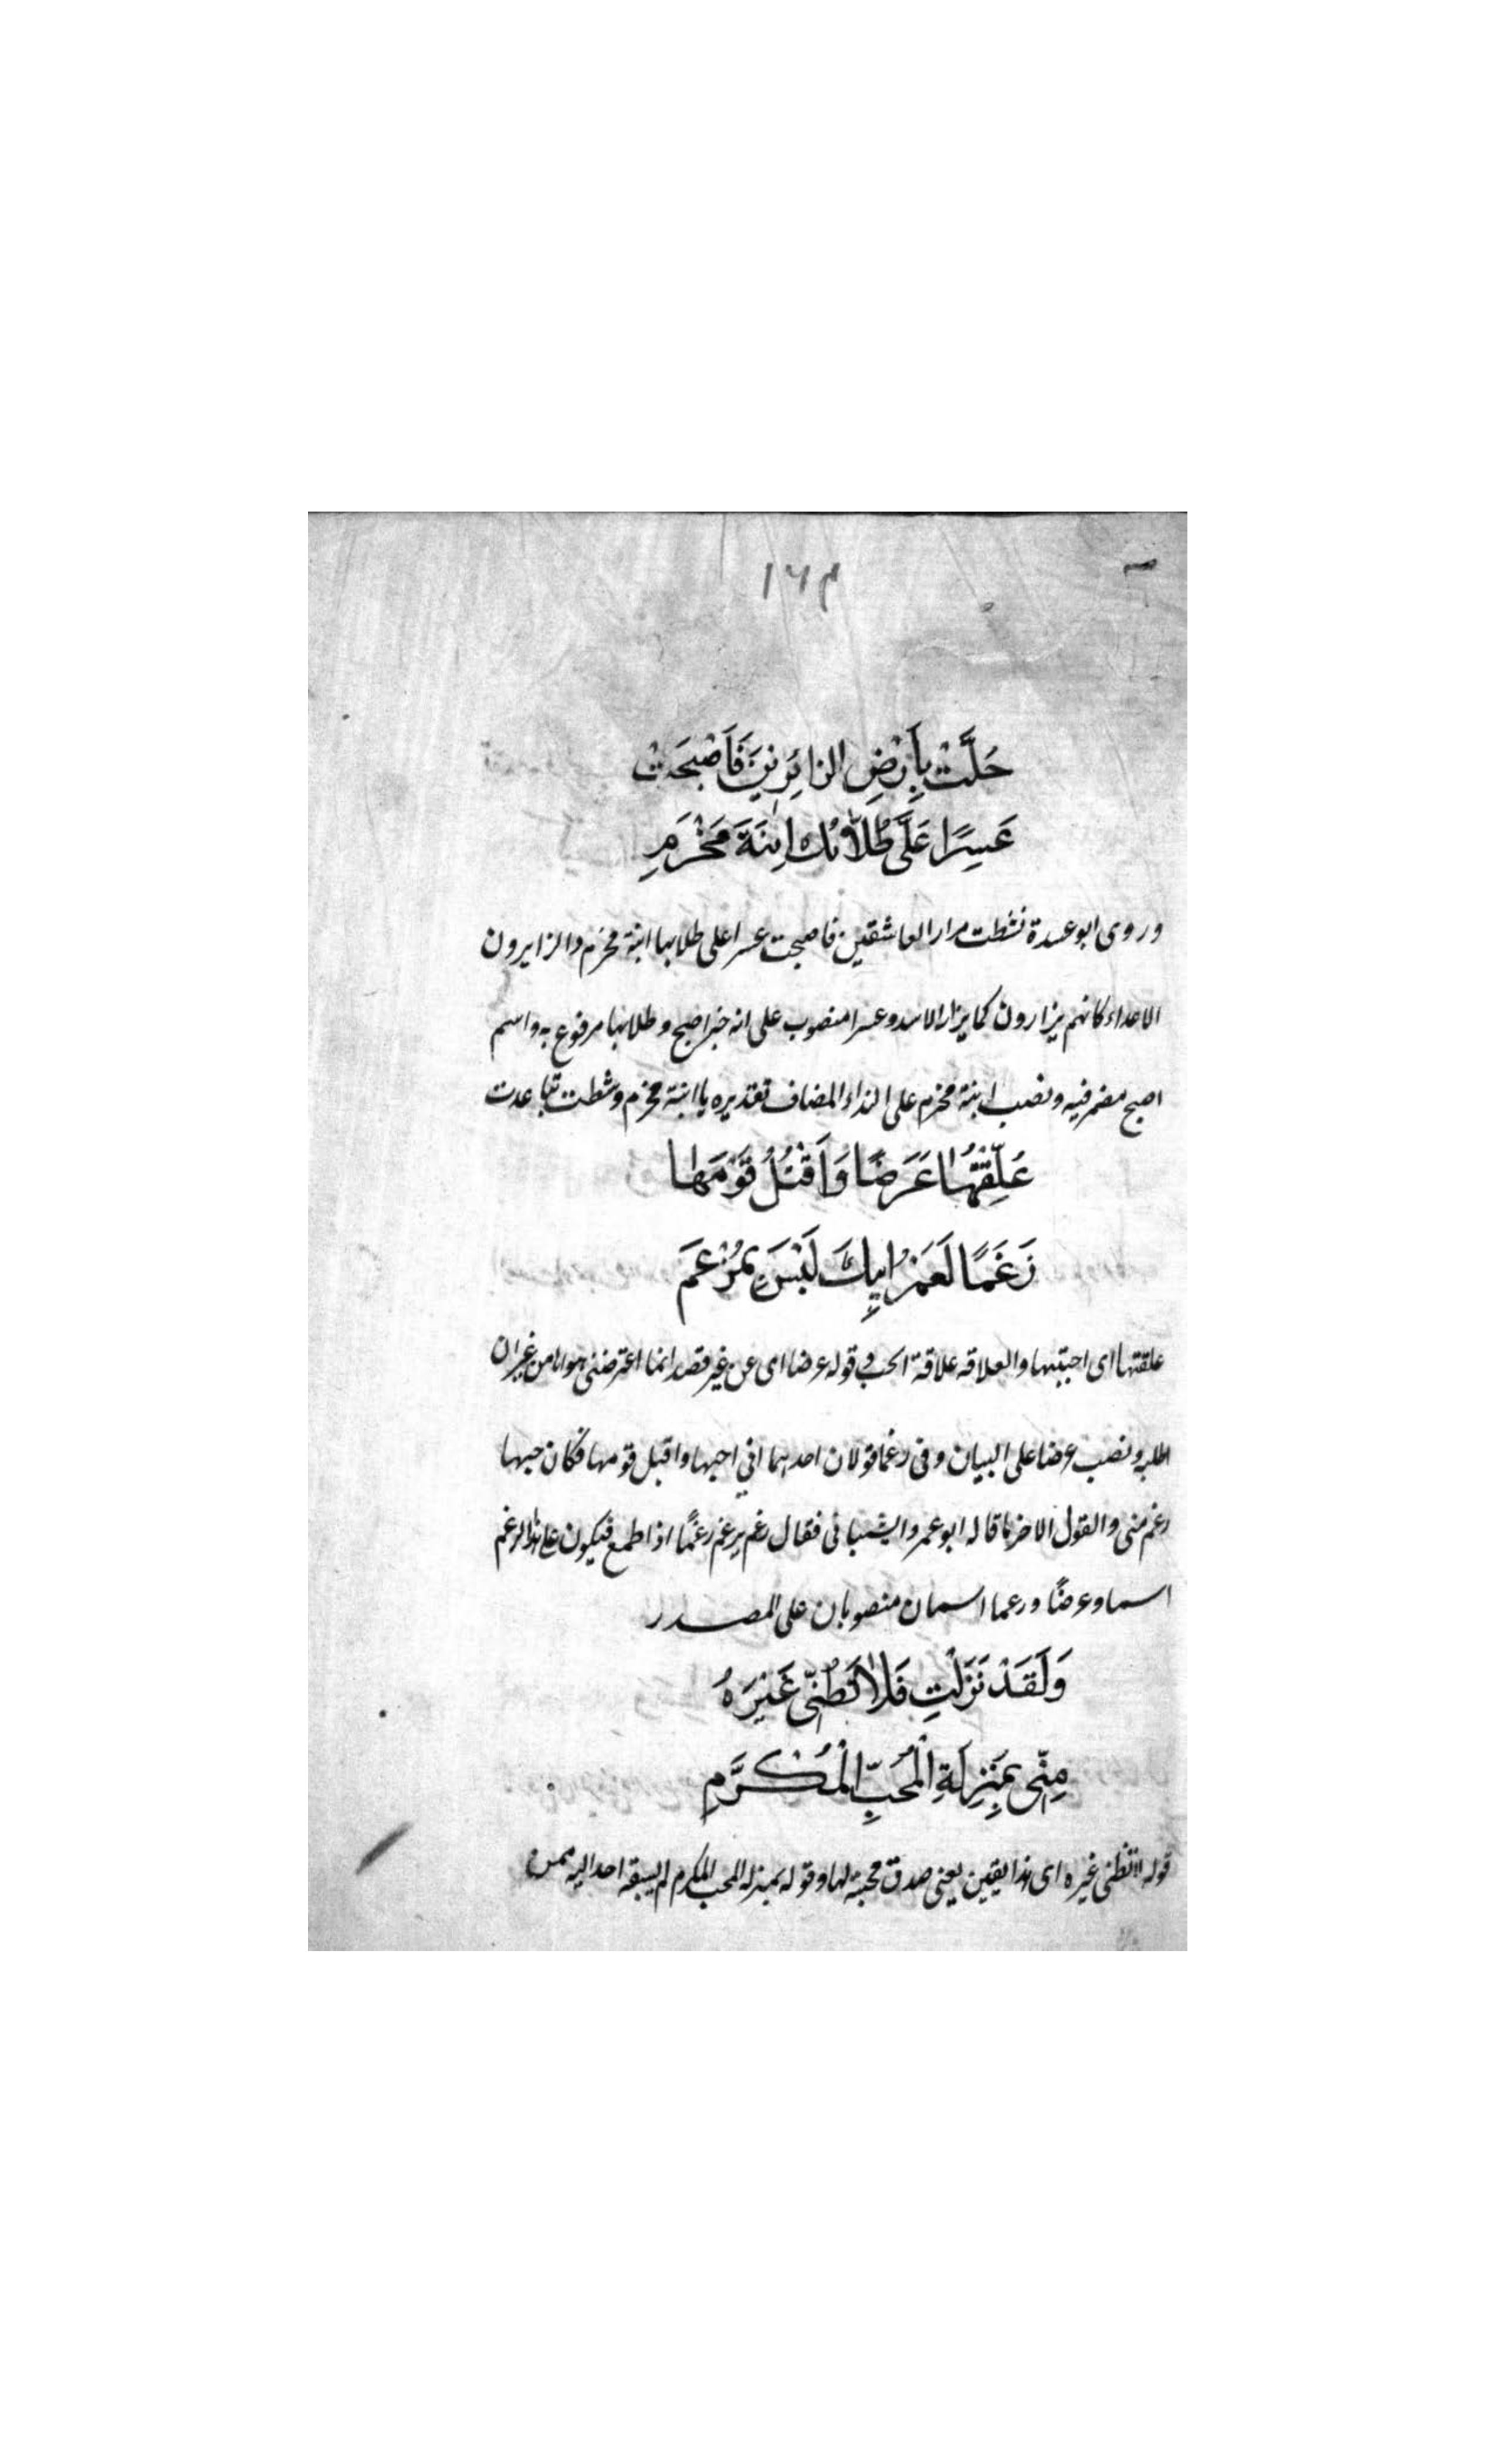 ١٦٣
حَلَّتْ بِاَرْضِ الزائِرِينَ فَاَصْبَحَتْ
عَسِرًا عَلَّى طُلاَّبُكِ ابنَةَ مَخْرَمِ
وروى ابو عبيدة شطت مزار العاشقين فاصبحت عسرا على طلابها ابنة مخرم والزايرون
الاعداء كانهم يزارون كما يزار الاسد وعسرا منصوب على انه خبر اصبح وطلابها مرفوع به واسم
اصبح مضمر فيه ونصب ابنة مخرم على النداء المضاف تقديره يا ابنة مخرم وشطت تباعدت
عَلِّقْتُهَا عَرَضًا وَاَقْتُلُ قَوْمَها
زَعَمًا لَعَمْرُ ابِيكَ لَيْسَ بِمُزْعَمَ
علقتها اى احببتها والعلاقه علاقة الحب وقوله عرضا اى عن غير قصد انما اعترضنى هواها من غير ان
اطلبه ونصب عرضا على البيان وفى رغما قولان احدهما انى احبها واقبل قومها فكان حبها
رغم منى والقول الاخر ما قاله ابو عمرو الشيبانى فقال رغم يرغم رغمًا اذا طمع فيكون على هذا الرغم
اسما وعرضًا ورعما اسمان منصوبان على المصدر
وَلَقَدْ نَزَلْتِ فَلاَ تَظُنّى غَيْرَهُ
مِنّى بِمَنْزِلَةِ الْمُحَبِّ الْمُكْرَّمِ
قوله لا تظنى غيره اى هذا يقين يعنى صدق محبته لها وقوله بمنزله المحب المكرم لم يسبقه احد اليه ممن